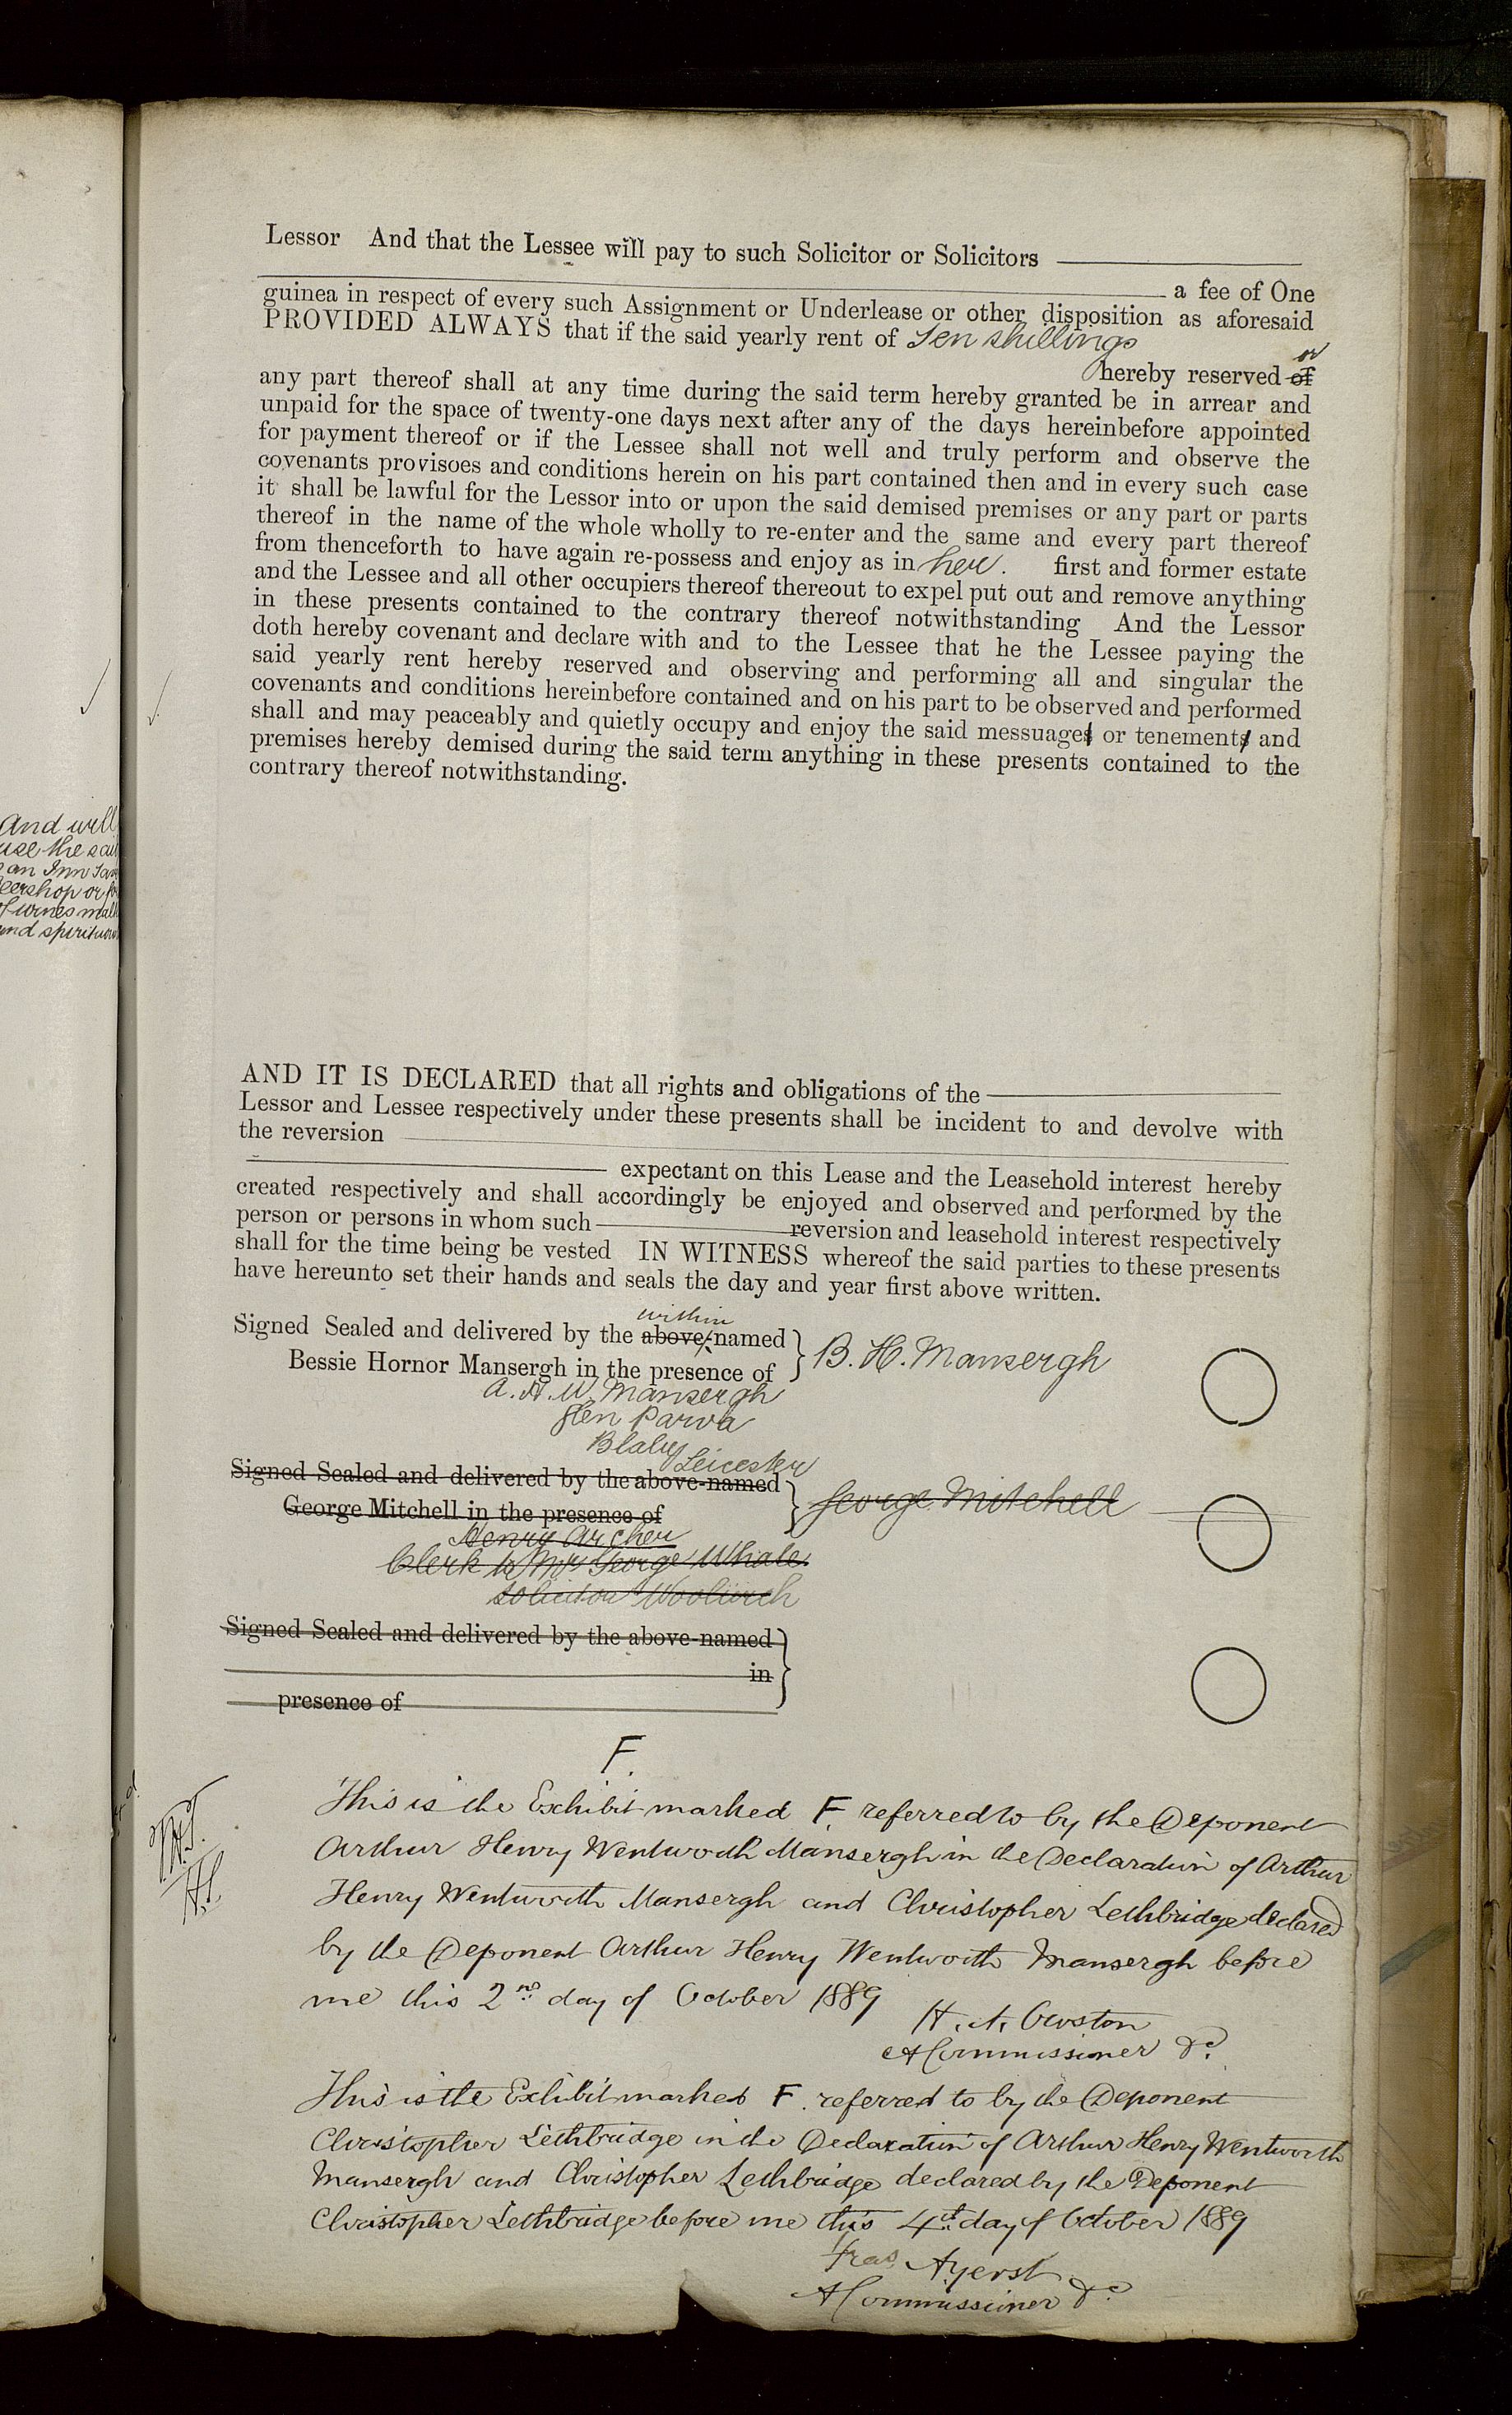 And will
use the said
an Inn Tav
eershop or for
of wines malt
and spirituous
Lessor And that the Lessee will pay to such Solicitor or Solicitors
a fee of One
guinea in respect of every such Assignment or Underlease or other disposition as aforesaid
PROVIDED ALWAYS that if the said yearly rent of Ten shillings
or
hereby reserved of
any part thereof shall at any time during the said term hereby granted be in arrear and
unpaid for the space of twenty-one days next after any of the days hereinbefore appointed
for payment thereof or if the Lessee shall not well and truly perform and observe the
covenants provisoes and conditions herein on his part contained then and in every such case
it shall be lawful for the Lessor into or upon the said demised premises or any part or parts
thereof in the name of the whole wholly to re-enter and the same and every part thereof
from thenceforth to have again re-possess and enjoy as in her. first and former estate
and the Lessee and all other occupiers thereof thereout to expel put out and remove anything
in these presents contained to the contrary thereof notwithstanding And the Lessor
doth hereby covenant and declare with and to the Lessee that he the Lessee paying the
said yearly rent hereby reserved and observing and performing all and singular the
covenants and conditions hereinbefore contained and on his part to be observed and performed
shall and may peaceably and quietly occupy and enjoy the said messuages or tenements and
premises hereby demised during the said term anything in these presents contained to the
contrary thereof notwithstanding.
AND IT IS DECLARED that all rights and obligations of the
Lessor and Lessee respectively under these presents shall be incident to and devolve with
the reversion
expectant on this Lease and the Leasehold interest hereby
created respectively and shall accordingly be enjoyed and observed and performed by the
person or persons in whom such reversion and leasehold interest respectively
shall for the time being be vested IN WITNESS whereof the said parties to these presents
have hereunto set their hands and seals the day and year first above written.
within
Signed Sealed and delivered by the above-named
Bessie Hornor Mansergh in the presence of
B. H. Mansergh
A. H. W. Mansergh
Glen Parva
Blaby
Leicester
Signed Sealed and delivered by the above-named
George Mitchell in the presence of
George Mitchell
Henry Archer
Clerk to Mr George Whale
Solicitor Woolwich
Signed Sealed and delivered by the above-named
in
presence of
F.
This is the Exhibit marked F referred to by the Deponent
Arthur Henry Wentworth Mansergh in the Declaration of Arthur
Henry Wentworth Mansergh and Christopher Lethbridge declared
by the Deponent Arthur Henry Wentworth Mansergh before
me this 2nd day of October 1889
H. A. Owston
A Commissioner &c.
This is the Exhibit marked F. referred to by the Deponent
Christopher Lethbridge in the Declaration of Arthur Henry Wentworth
Mansergh and Christopher Lethbridge declared by the Deponent
Christopher Lethbridge before me this 4th day of October 1889
Fras Ayerst
A Commissioner &c.